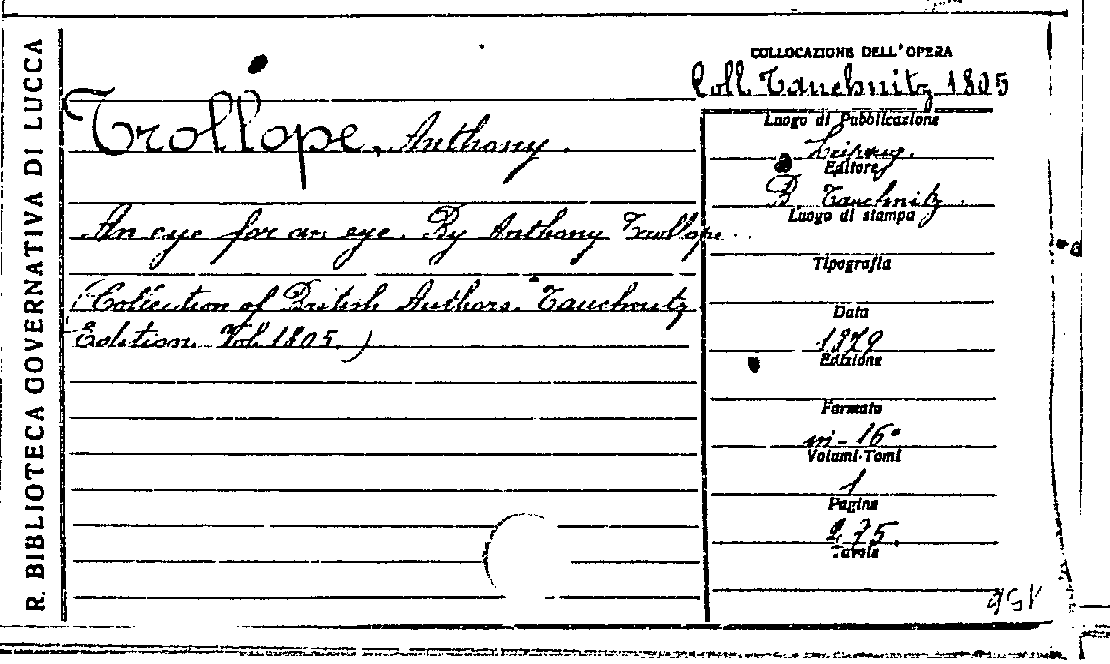 R. BIBLIOTECA GOVERNATIVA DI LUCCA
COLLOCAZIONE DELL'OPERA
Coll. Tauchnitz 1805
Trollope, Anthony.
An eye for an eye. By Anthony Trollope.
(Collection of British Authors. Tauchnitz
Edition. Vol. 1805.)
Luogo di Pubblicazione
Leipzig.
Editore
B. Tauchnitz.
Luogo di stampa
Tipografia
Data
1879
Edizione
Formato
in-16°
Volumi-Tomi
1
Pagine
275.
Tavole